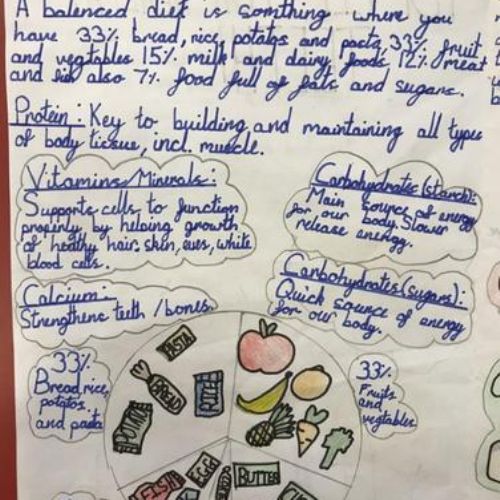 A balenced diet is somthing where you
have 33% bread, rice, potatos and pasta, 33% fruit
and vegtables 15% milk and dairy foods 12% meat
and also 7% food full of fats and sugars.
Protein: Key to building and maintaining all types
of body tissue, incl. muscle.
Vitamins/Minerals:
Supports cells to function
properly by helping growth
of healthy hair, skin, eyes, white
blood cells.
Carbohydrates (starch):
Main source of energy
for our body. Slower
release energy.
Carbohydrates (sugars):
Quick source of energy
for our body.
Calcium:
Strengthens teeth / bones.
33%
Bread, rice,
potatos
and pasta
PASTA
BREAD
RICE
POTATO
33%
Fruits
and
vegetables
FISH
EGGS
BUTTER